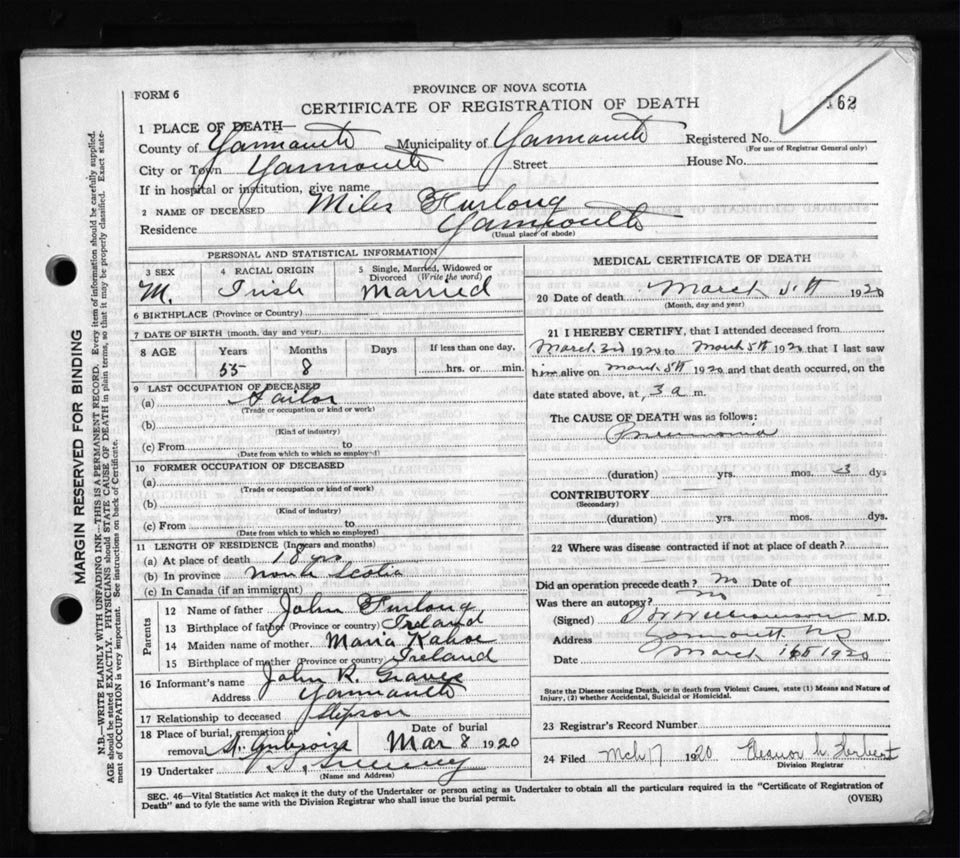 PROVINCE OF NOVA SCOTIA
FORM 6
CERTIFICATE OF REGISTRATION OF DEATH
162
1 PLACE OF DEATH—
County of Yarmouth Municipality of Yarmouth Registered No.
(For use of Registrar General only)
City or Town Yarmouth Street House No.
If in hospital or institution, give name
2 NAME OF DECEASED Miles Furlong
Residence Yarmouth
(Usual place of abode)
PERSONAL AND STATISTICAL INFORMATION
3 SEX 4 RACIAL ORIGIN 5 Single, Married, Widowed or
Divorced (Write the word)
M. Irish Married
6 BIRTHPLACE (Province or Country)
7 DATE OF BIRTH (month, day and year)
8 AGE Years Months Days If less than one day,
55 8 hrs. or min.
9 LAST OCCUPATION OF DECEASED
(a) Tailor
(Trade or occupation or kind or work)
(b)
(Kind of industry)
(c) From to
(Date from which to which so employed)
10 FORMER OCCUPATION OF DECEASED
(a)
(Trade or occupation or kind of work)
(b)
(Kind of industry)
(c) From to
(Date from which to which so employed)
11 LENGTH OF RESIDENCE (In years and months)
(a) At place of death 18 yrs
(b) In province Nova Scotia
(c) In Canada (if an immigrant)
Parents
12 Name of father John Furlong
13 Birthplace of father (Province or country) Ireland
14 Maiden name of mother Maria Kahoe
15 Birthplace of mother (Province or country) Ireland
16 Informant's name John R. Graves
Address Yarmouth
17 Relationship to deceased Stepson
18 Place of burial, cremation or Date of burial
removal St. Ambroise Mar 8 1920
19 Undertaker Sweeney
(Name and Address)
MEDICAL CERTIFICATE OF DEATH
20 Date of death March 5th 1920
(Month, day and year)
21 I HEREBY CERTIFY, that I attended deceased from
March 3rd 1920 to March 5th 1920 that I last saw
him alive on March 5th 1920 and that death occurred, on the
date stated above, at 3 a m.
The CAUSE OF DEATH was as follows:
Pneumonia
(duration) yrs. mos. 3 dys
CONTRIBUTORY
(Secondary)
(duration) yrs. mos. dys.
22 Where was disease contracted if not at place of death?
Did an operation precede death? No Date of
Was there an autopsy? No
(Signed) Williamson M.D.
Address Yarmouth N.S
Date March 16th 1920
State the Disease causing Death, or in death from Violent Causes, state (1) Means and Nature of
Injury, (2) whether Accidental, Suicidal or Homicidal.
23 Registrar's Record Number
24 Filed Mch 17 1920 Eleanor L. Herbert
Division Registrar
SEC. 46—Vital Statistics Act makes it the duty of the Undertaker or person acting as Undertaker to obtain all the particulars required in the "Certificate of Registration of
Death" and to fyle the same with the Division Registrar who shall issue the burial permit.
(OVER)
MARGIN RESERVED FOR BINDING
N.B.—WRITE PLAINLY WITH UNFADING INK—THIS IS A PERMANENT RECORD. Every item of information should be carefully supplied.
AGE should be stated EXACTLY. PHYSICIANS should STATE CAUSE OF DEATH in plain terms, so that it may be properly classified. Exact state-
ment of OCCUPATION is very important. See instructions on back of Certificate.